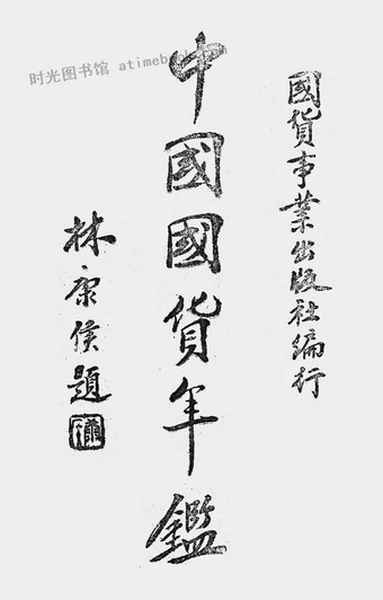 时光图书馆
國貨事業出版社編行
中國國貨年鑑
林康侯題